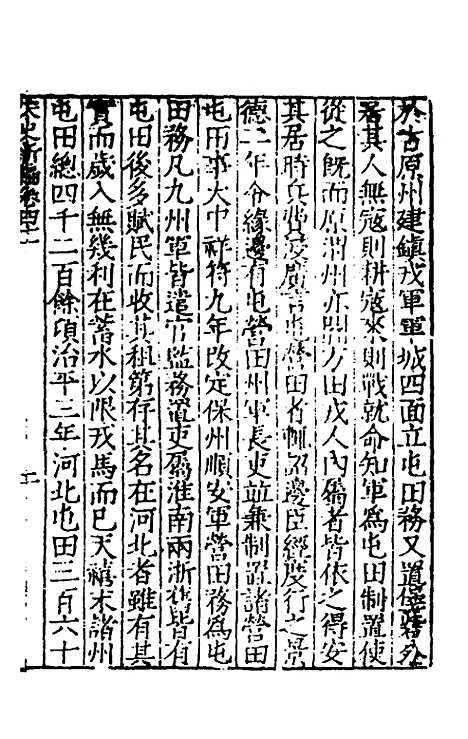 於古原州建鎮戎軍軍城四面立屯田務又置堡砦分
居其人無寇則耕寇來則戰就命知軍為屯田制置使
從之既而原渭州亦開方田戎人內屬者皆依之得安
其居時兵費浸廣言屯營田者輒詔邊臣經度行之景
德二年令緣邊有屯營田州軍長吏並兼制置諸營田
屯田事大中祥符九年改定保州順安軍營田務為屯
田務凡九州軍皆遣官監務置吏屬淮南兩浙舊皆有
屯田後多賦民而收其租第存其名在河北者雖有其
實而歲入無幾利在蓄水以限戎馬而已天禧末諸州
屯田總四千二百餘頃治平三年河北屯田三百六十
宋史新編卷四十